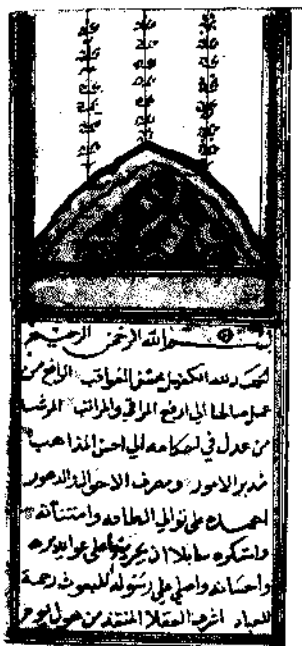 بسم الله الرحمن الرحيم
الحمد لله الكفيل بحسن العواقب الرافع من
عمل صالحا الي ارفع المراقي والمراتب المرشد
من عدل في احكامه الي احسن المذاهب
مدبر الامور ومصرف الاحوال والدهور
احمده علي توالي الطافه وامتنانه
واشكره سايلا ان علي عوايد بره
واحسانه واصلي علي رسوله المبعوث رحمة
للعباد العقلا المنقذ من هول يوم